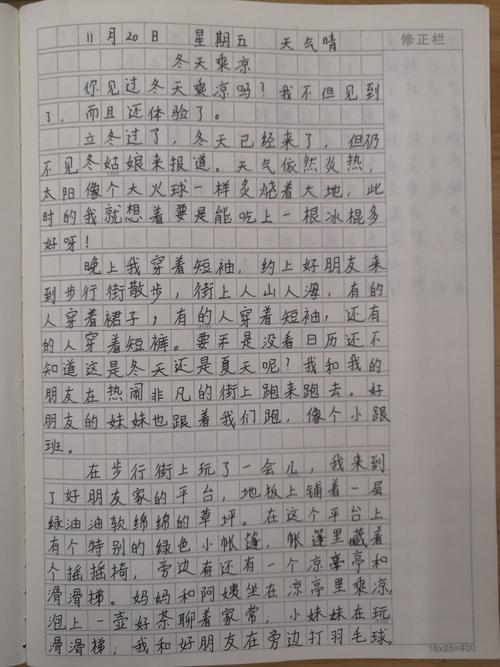 11月20日 星期五 天气晴
修正栏
冬天乘凉
你见过冬天乘凉吗？我不但见到
了，而且还体验了。
立冬过了，冬天已经来了，但仍
不见冬姑娘来报道。天气依然炎热，
太阳像个大火球一样炙烧着大地，此
时的我就想着要是能吃上一根冰棍多
好呀！
晚上我穿着短袖，约上好朋友来
到步行街散步，街上人山人海，有的
人穿着裙子，有的人穿着短袖，还有
的人穿着短裤。要手是没看日历还不
知道这是冬天还是夏天呢？我和我的
朋友在热闹非凡的街上跑来跑去。好
朋友的妹妹也跟着我们跑，像个小跟
班。
在步行街上玩了一会儿，我来到
了好朋友家的平台，地板上铺着一层
绿油油软绵绵的草坪。在这个平台上
有个特别的绿色小帐篷，帐篷里藏着
个摇摇椅，旁边有还有一个凉亭和
滑滑梯。妈妈和阿姨坐在凉亭里乘凉，
泡上一壶好茶聊着家常，小妹妹在玩
滑滑梯；我和好朋友在旁边打羽毛球
16×25=400